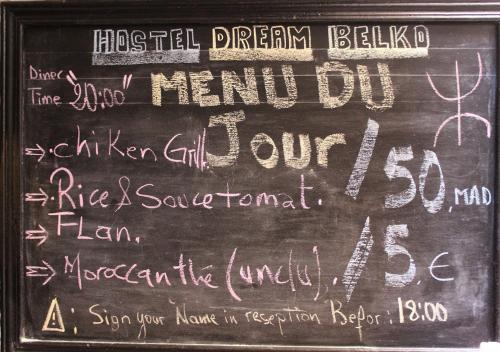 HOSTEL DREAM BELKO
Diner Time "20:00"
MENU DU
Jour
⇒ .chiKen Grill
⇒ .Rice & Souce tomat.
⇒ FLan.
⇒ Moroccan thé (unclu).
/50.MAD
/5.€
⚠: Sign your Name in reseption Befor: 18:00
ⵣ